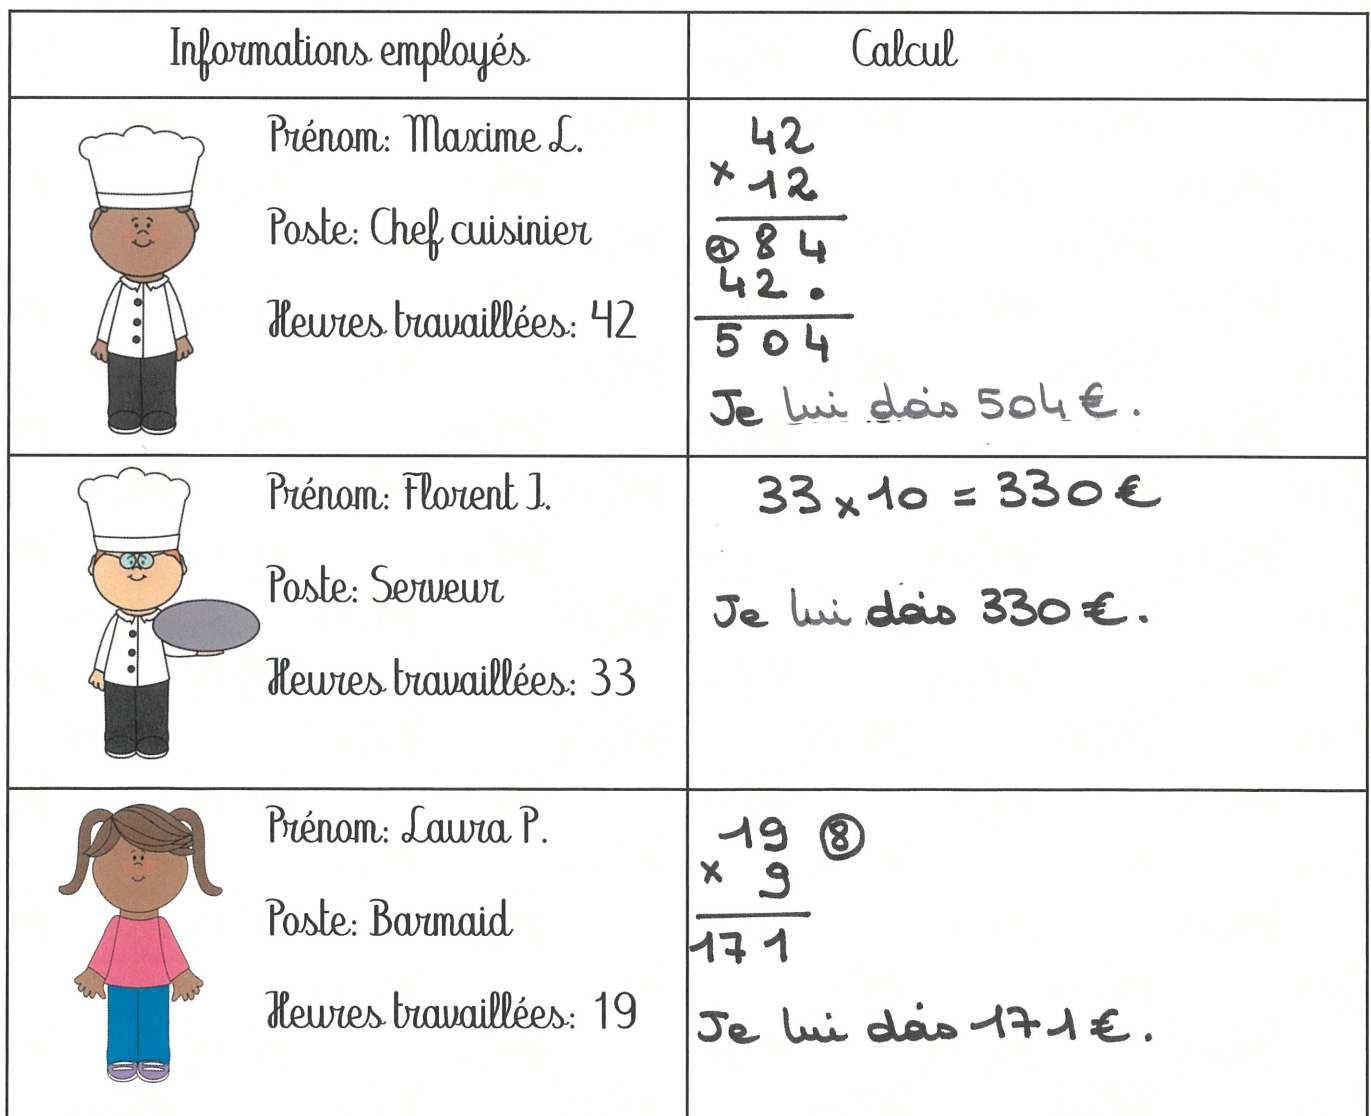 Informations employés
Calcul
Prénom: Maxime L.
Poste: Chef cuisinier
Heures travaillées: 42
42
× 12
① 8 4
4 2 .
5 0 4
Je lui dois 504 €.
Prénom: Florent J.
Poste: Serveur
Heures travaillées: 33
33 × 10 = 330 €
Je lui dois 330 €.
Prénom: Laura P.
Poste: Barmaid
Heures travaillées: 19
19 ⑧
× 9
171
Je lui dois 171 €.